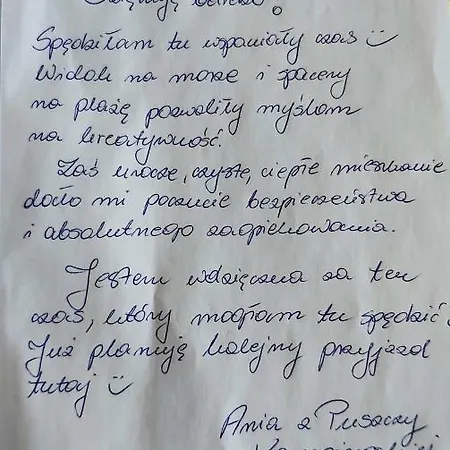 Dziękuję bardzo.
Spędziłam tu wspaniały czas ☺
Widok na morze i spacery
na plażę pozwoliły myślom
na kreatywność.
Zaś urocze, czyste, ciepłe mieszkanie
dało mi poczucie bezpieczeństwa
i absolutnego zaopiekowania.
Jestem wdzięczna za ten
czas, który mogłam tu spędzić.
Już planuję kolejny przyjazd
tutaj ☺
Ania z Puszczy